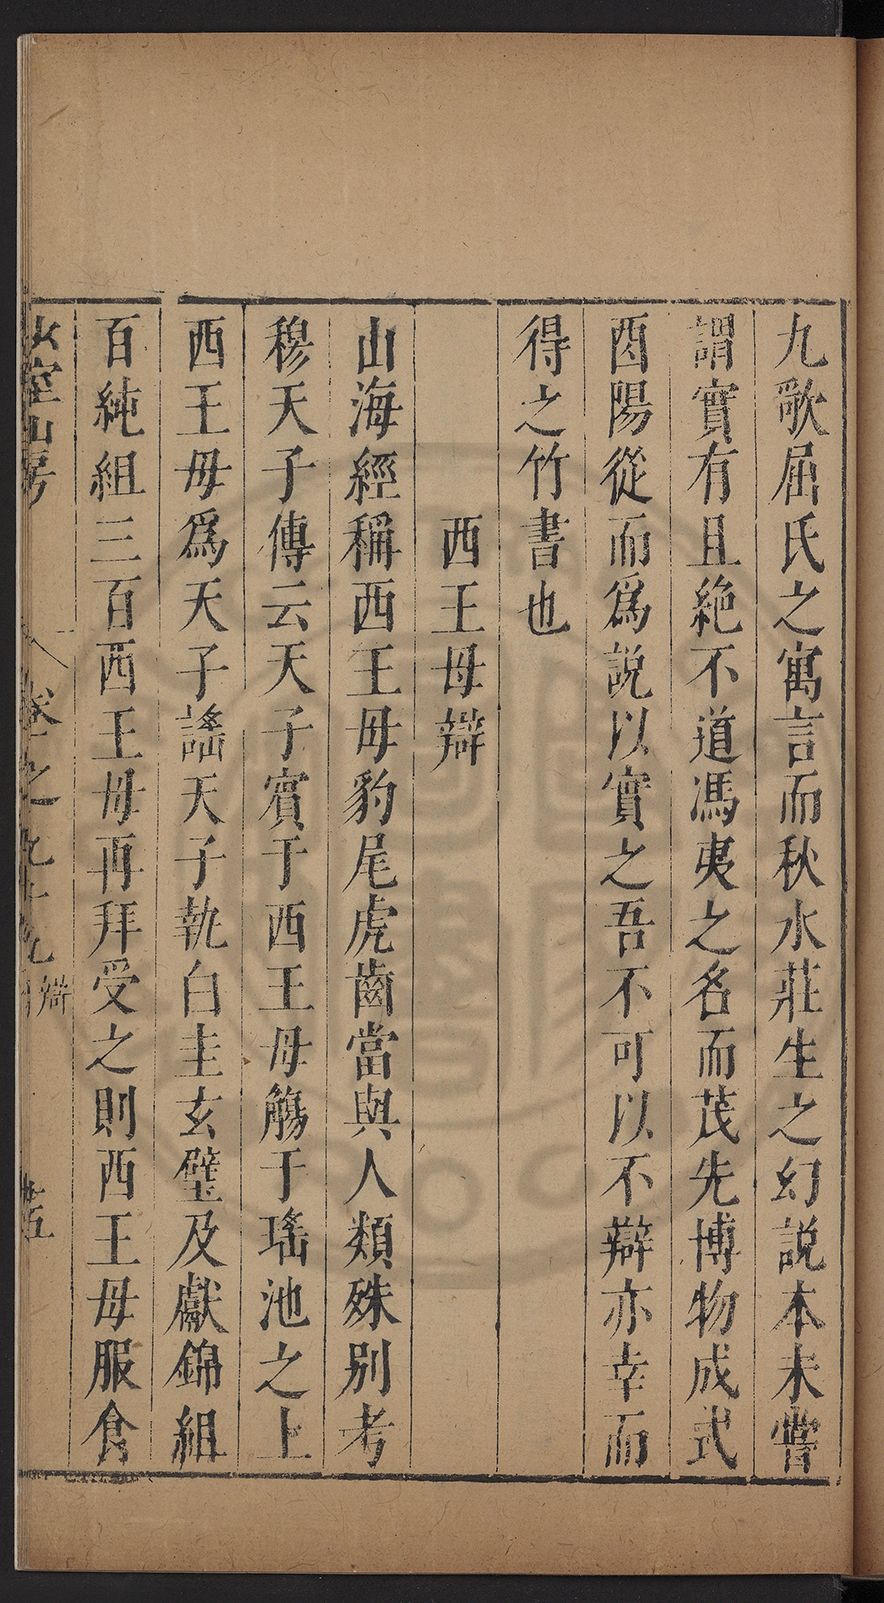 九歌屈氏之寓言而秋水莊生之幻說本未嘗
謂實有且絶不道馮夷之名而茂先博物成式
酉陽從而爲說以實之吾不可以不辯亦幸而
得之竹書也
西王母辯
山海經稱西王母豹尾虎齒當與人類殊别考
穆天子傳云天子賓于西王母觴于瑤池之上
西王母爲天子謠天子執白圭玄璧及獻錦組
百純組三百西王母再拜受之則西王母服食
少室山房 卷之九十九 辯